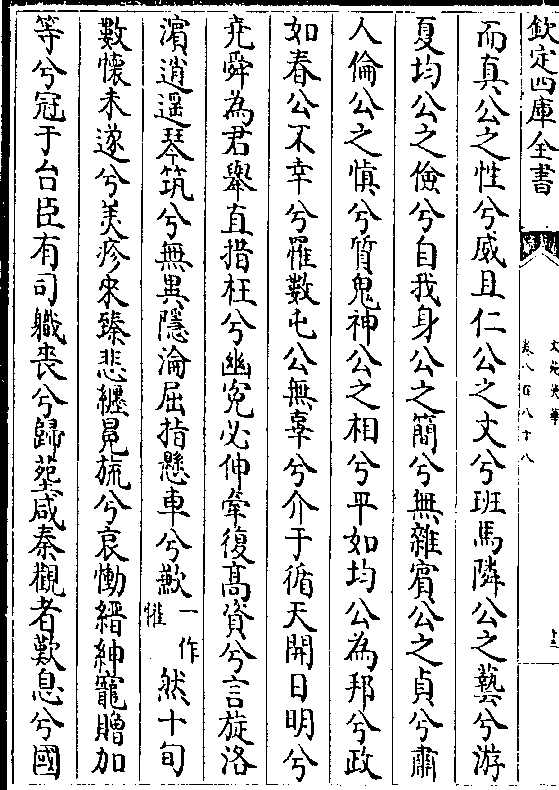 欽定四庫全書
文苑英華
卷八百八十八
而真公之性兮威且仁公之文兮班馬隣公之藝兮游
夏均公之儉兮自我身公之簡兮無雜賓公之貞兮肅
人倫公之慎兮質鬼神公之相兮平如均公為邦兮政
如春公不幸兮罹數屯公無辜兮介于循天開日明兮
尭舜為君舉直措枉兮幽寃必伸牽復髙資兮言旋洛
濵逍遥琴筑兮無異隱淪屈指懸車兮歉一作惟然十旬
數懷未遂兮美疹來臻悲纒冕旒兮哀慟縉紳寵贈加
等兮冠于台臣有司職喪兮歸塋咸秦觀者歎息兮國